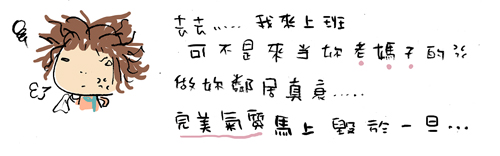 去去.....我來上班
可不是來當妳老媽子的
做妳鄰居真衰.....
完美氣質馬上毀於一旦...